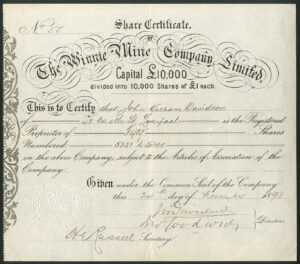 Share Certificate,
of
The Winnie Mine Company, Limited.
Capital £10,000
divided into 10,000 Shares of £1 each.
This is to Certify that John William Davidson
of Castle St, Liverpool is the Registered
Proprietor of Fifty Shares
Numbered to
in the above Company, subject to the Articles of Association of the
Company.
Given under the Common Seal of the Company
this day of November
Directors
Secretary.